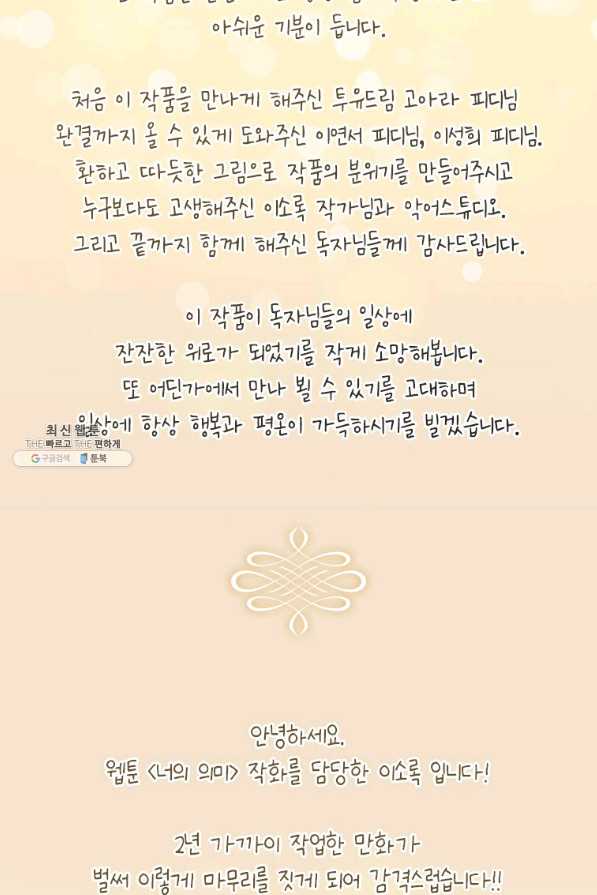 아쉬운 기분이 듭니다.
처음 이 작품을 만나게 해주신 투유드림 고아라 피디님
완결까지 올 수 있게 도와주신 이연서 피디님, 이성희 피디님.
환하고 따듯한 그림으로 작품의 분위기를 만들어주시고
누구보다도 고생해주신 이소록 작가님과 악어스튜디오.
그리고 끝까지 함께 해주신 독자님들께 감사드립니다.
이 작품이 독자님들의 일상에
잔잔한 위로가 되었기를 작게 소망해봅니다.
또 어딘가에서 만나 뵐 수 있기를 고대하며
일상에 항상 행복과 평온이 가득하시기를 빌겠습니다.
최신웹툰
THE 빠르고 THE 편하게
구글검색 툰북
안녕하세요.
웹툰 <너의 의미> 작화를 담당한 이소록 입니다!
2년 가까이 작업한 만화가
벌써 이렇게 마무리를 짓게 되어 감격스럽습니다!!